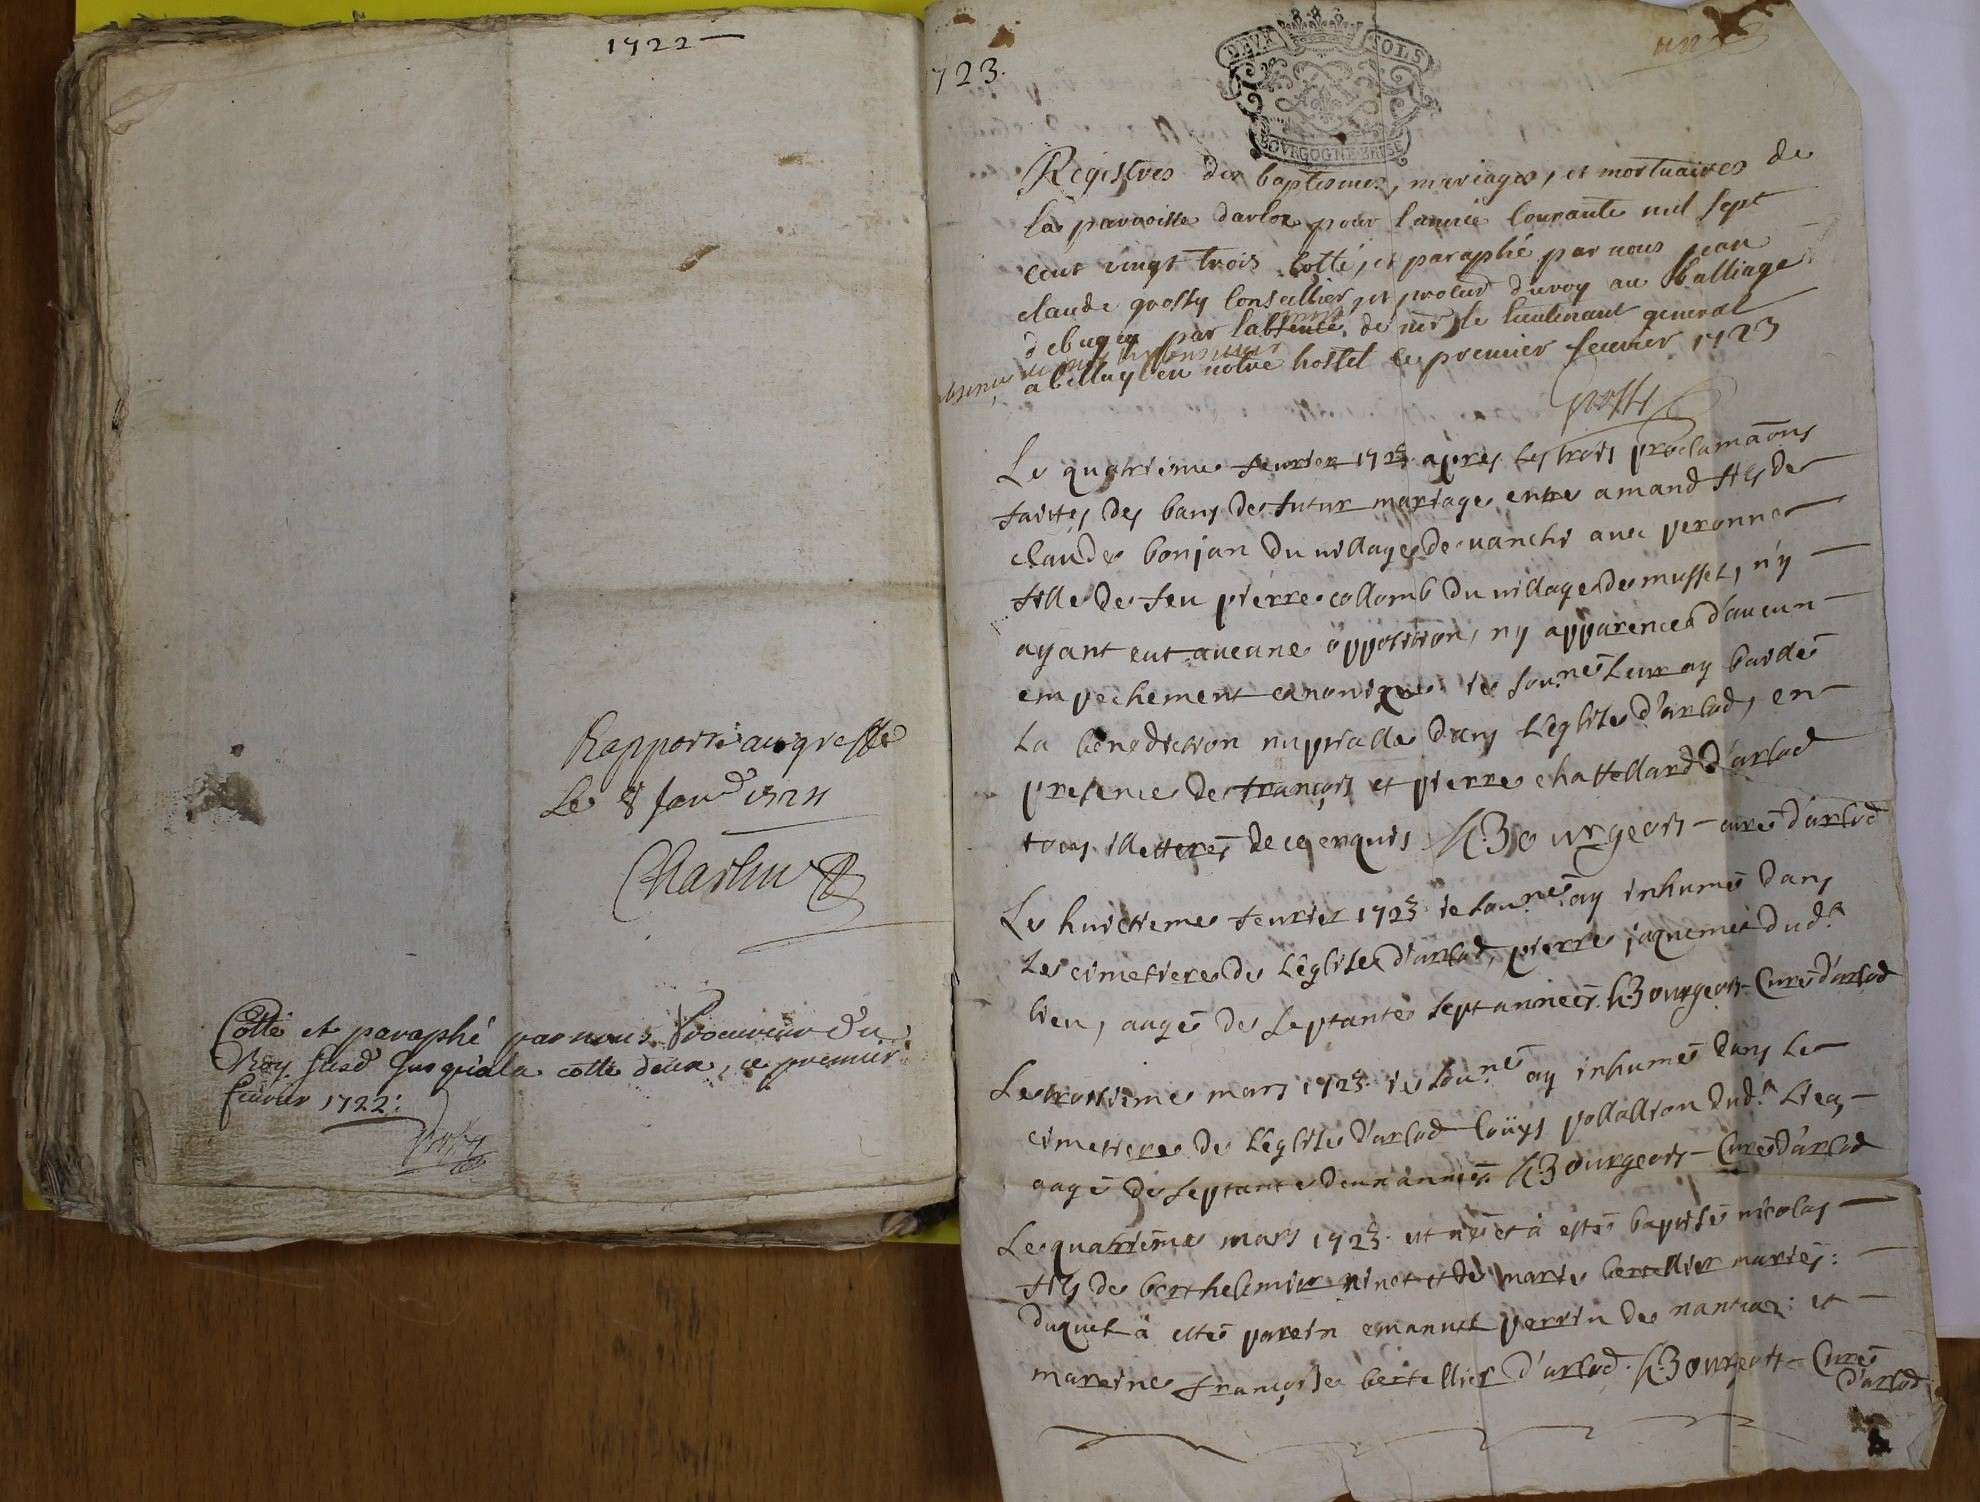 1722
Rapporté au greffe
Le 8 Janr 1724
Martin
Cotté et paraphé par nous Procureur du
Roy jusqu'a la cotte deux, ce premier
fevrier 1722.
Grossy
1723.
DEUX SOLS
BOURGOGNE BRESSE
une
Registres des baptesmes, mariages, et mortuaires de
la parroisse darlod pour l'année courante mil sept
cent vingt trois cotté, et paraphé par nous jean
claude grossy Conseillier, et procur du roy au Balliage
de bugey par labsence de mr le lieutenant general
a belley en notre hostel ce premier fevrier 1723
Grossy
Le quatrieme fevrier 1723 apres les trois proclamaõns
faittes des bans de futur mariage entre amand fils de
claude bonjan du village de vanchi avec peronne
fille de feu pierre collomb du village de mussel, n'y
ayant eut aucune opposition, ny apparence d'aucun
empechement canonique ie sou.né leur ay baidé
La benediction nuptialle dans L'eglise d'arlod, en
presence de françois et pierre chattellard d'arlod
tous illetterés de ce enquis h. Bourgeois curé d'arlod
Le huictieme fevrier 1723 ie sou.né ay inhumé dans
Le cimetiere de L'eglise d'arlod, pierre jaquemet dud.t
lieu, aagé de septante sept années. h. Bourgeois Curé d'arlod
Le troisieme mars 1723 ie sou.né ay inhumé dans Le
cimetiere de L'eglise d'arlod Loüys pollallion dud.t Lieu
aagé de septante deux années. h. Bourgeois Curé d'arlod
Le quatrieme mars 1723 est né et à esté baptisé nicolas
fils de berthelemier ninet et de marie bertellier mariés:
duquel à esté parein emanuel perrin de nantua: et
mareine françoise bertellier d'arlod. h. Bourgeois Curé
d'arlod